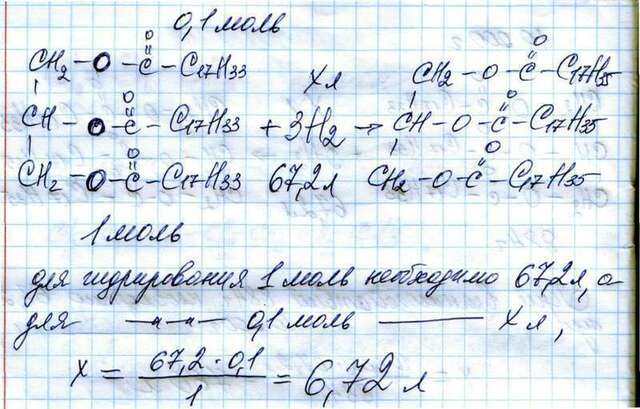 0,1 моль
O
CH2 - O - C - C17H33 х л CH2 - O - C - C17H35
CH - O - C - C17H33 + 3H2 → CH - O - C - C17H35
CH2 - O - C - C17H33 67,2 л CH2 - O - C - C17H35
1 моль
для гидрирования 1 моль необходимо 67,2 л, а
для —"—"— 0,1 моль —— х л,
х = 67,2 · 0,1 / 1 = 6,72 л